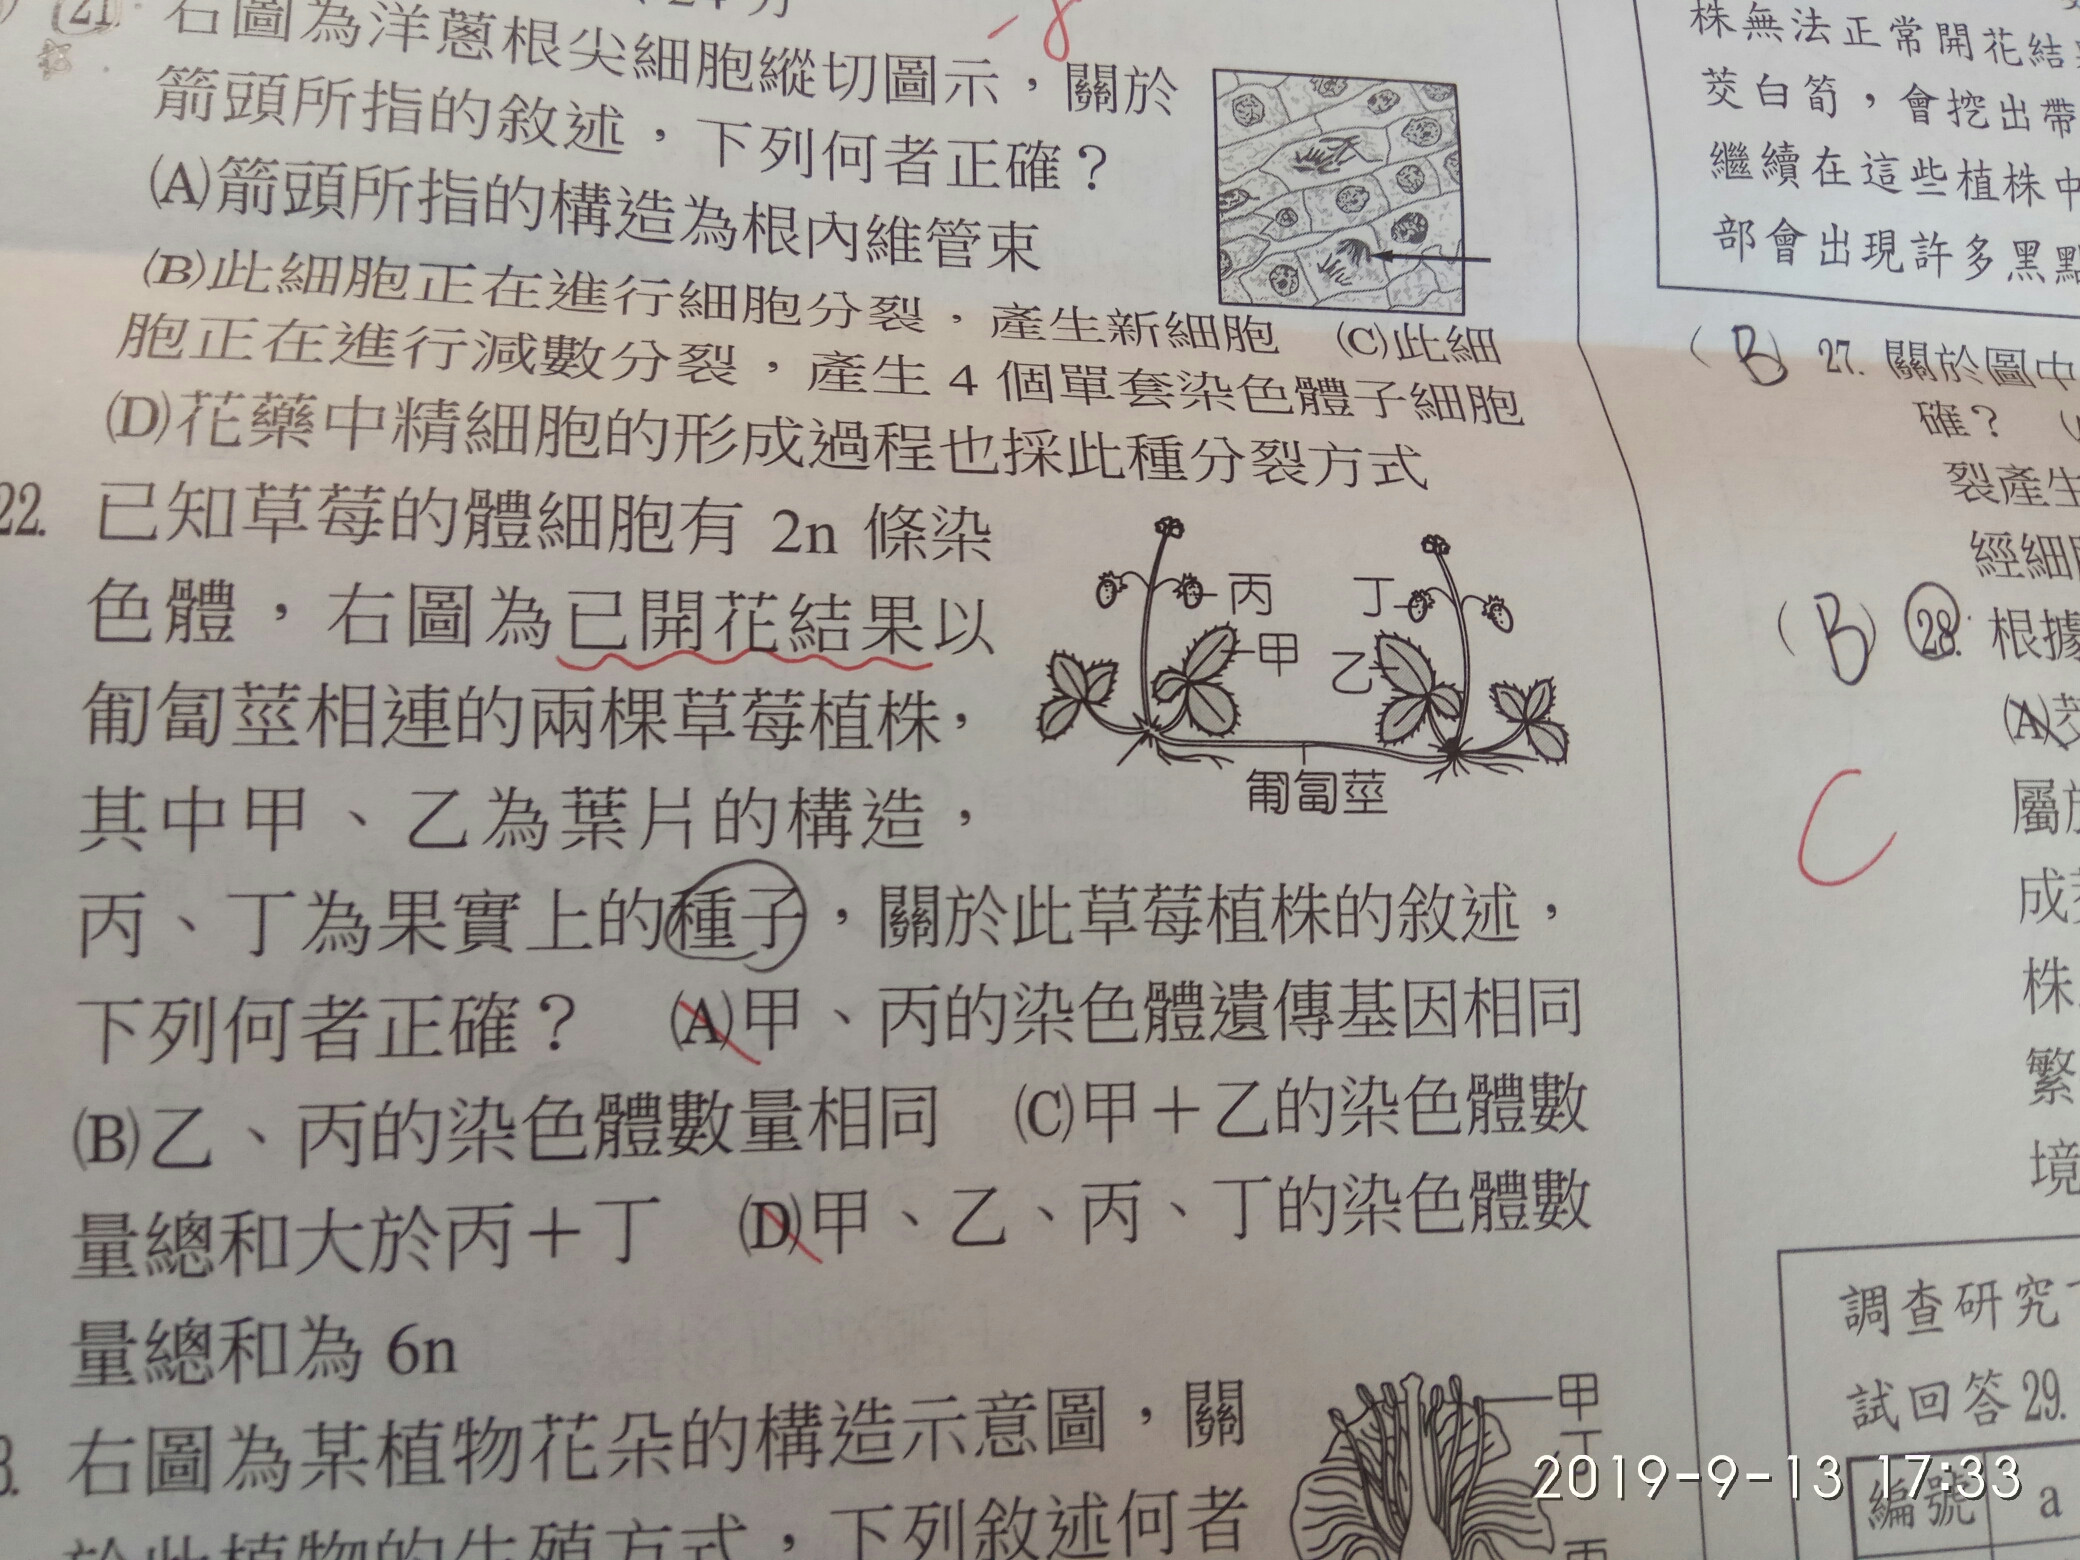 21. 右圖為洋蔥根尖細胞縱切圖示，關於
箭頭所指的敘述，下列何者正確？
(A)箭頭所指的構造為根內維管束
(B)此細胞正在進行細胞分裂，產生新細胞 (C)此細
胞正在進行減數分裂，產生 4 個單套染色體子細胞
(D)花藥中精細胞的形成過程也採此種分裂方式
22. 已知草莓的體細胞有 2n 條染
色體，右圖為已開花結果以
匍匐莖相連的兩棵草莓植株，
其中甲、乙為葉片的構造，
丙、丁為果實上的種子，關於此草莓植株的敘述，
下列何者正確？ (A)甲、丙的染色體遺傳基因相同
(B)乙、丙的染色體數量相同 (C)甲＋乙的染色體數
量總和大於丙＋丁 (D)甲、乙、丙、丁的染色體數
量總和為 6n
丙
丁
甲
乙
匍匐莖
右圖為某植物花朵的構造示意圖，關
於此植物的生殖方式，下列敘述何者
甲
丁
丙
-8
株無法正常開花結
茭白筍，會挖出帶
繼續在這些植株中
部會出現許多黑點
(B) 27. 關於圖中
確？
裂產生
經細胞
(B) 28. 根據
(A)
C
屬於
成
株
繁
境
調查研究
試回答 29.
編號 a
2019-9-13 17:33